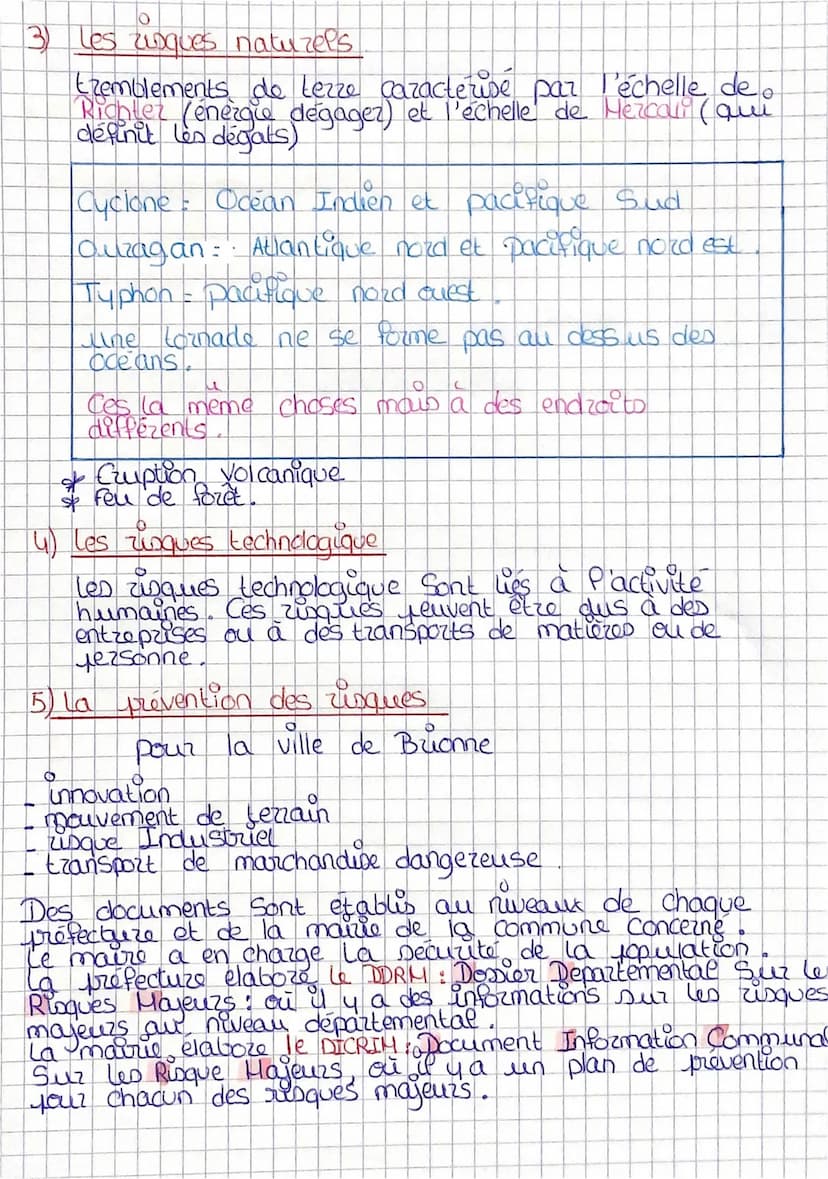 3) Les risques naturels
tremblements de terre caractérisé par l'échelle de
Richter (énergie dégager) et l'échelle de Mercali (qui
définit les dégats)
Cyclone = Océan Indien et pacifique Sud
Ouragan = Atlantique nord et pacifique nord est.
Typhon = pacifique nord ouest.
une tornade ne se forme pas au dessus des
océans.
Ces la même choses mais à des endroits
différents.
* Eruption volcanique
* Feu de forêt.
4) Les risques technologique
Les risques technologique sont liés à l'activité
humaines. Ces risques peuvent être dus à des
entreprises ou à des transports de matières ou de
personne.
5) La prévention des risques
pour la ville de Brionne
- innovation
- mouvement de terrain
- risque Industriel
- transport de marchandise dangereuse.
Des documents sont établis au niveaux de chaque
préfecture et de la mairie de la commune concerné.
Le maire a en charge la sécurité de la population.
La préfecture élabore le DDRM : Dossier Départemental Sur les
Risques Majeurs : où il y a des informations sur les risques
majeurs au niveau départemental.
La mairie élabore le DICRIM : Document Information Communal
Sur les Risque Majeurs, où il y a un plan de prévention
pour chacun des risques majeurs.